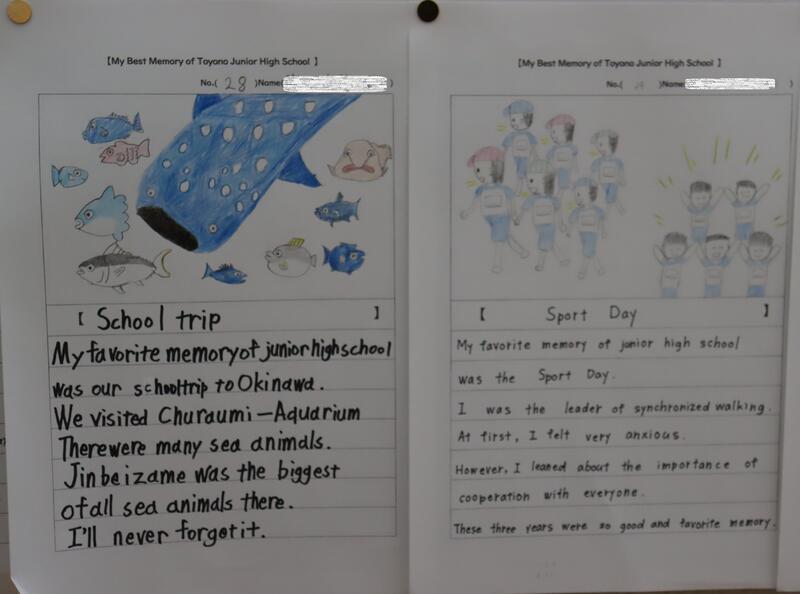 【My Best Memory of Toyono Junior High School 】
No.( 28 )Name( )
【 School trip 】
My favorite memory of junior high school
was our school trip to Okinawa.
We visited Churaumi-Aquarium
There were many sea animals.
Jinbeizame was the biggest
of all sea animals there.
I'll never forget it.
【My Best Memory of Toyono Junior High School 】
No.( )Name( )
【 Sport Day 】
My favorite memory of junior high school
was the Sport Day.
I was the leader of synchronized walking.
At first, I felt very anxious.
However, I leaned about the importance of
cooperation with everyone.
These three years were so good and favorite memory.